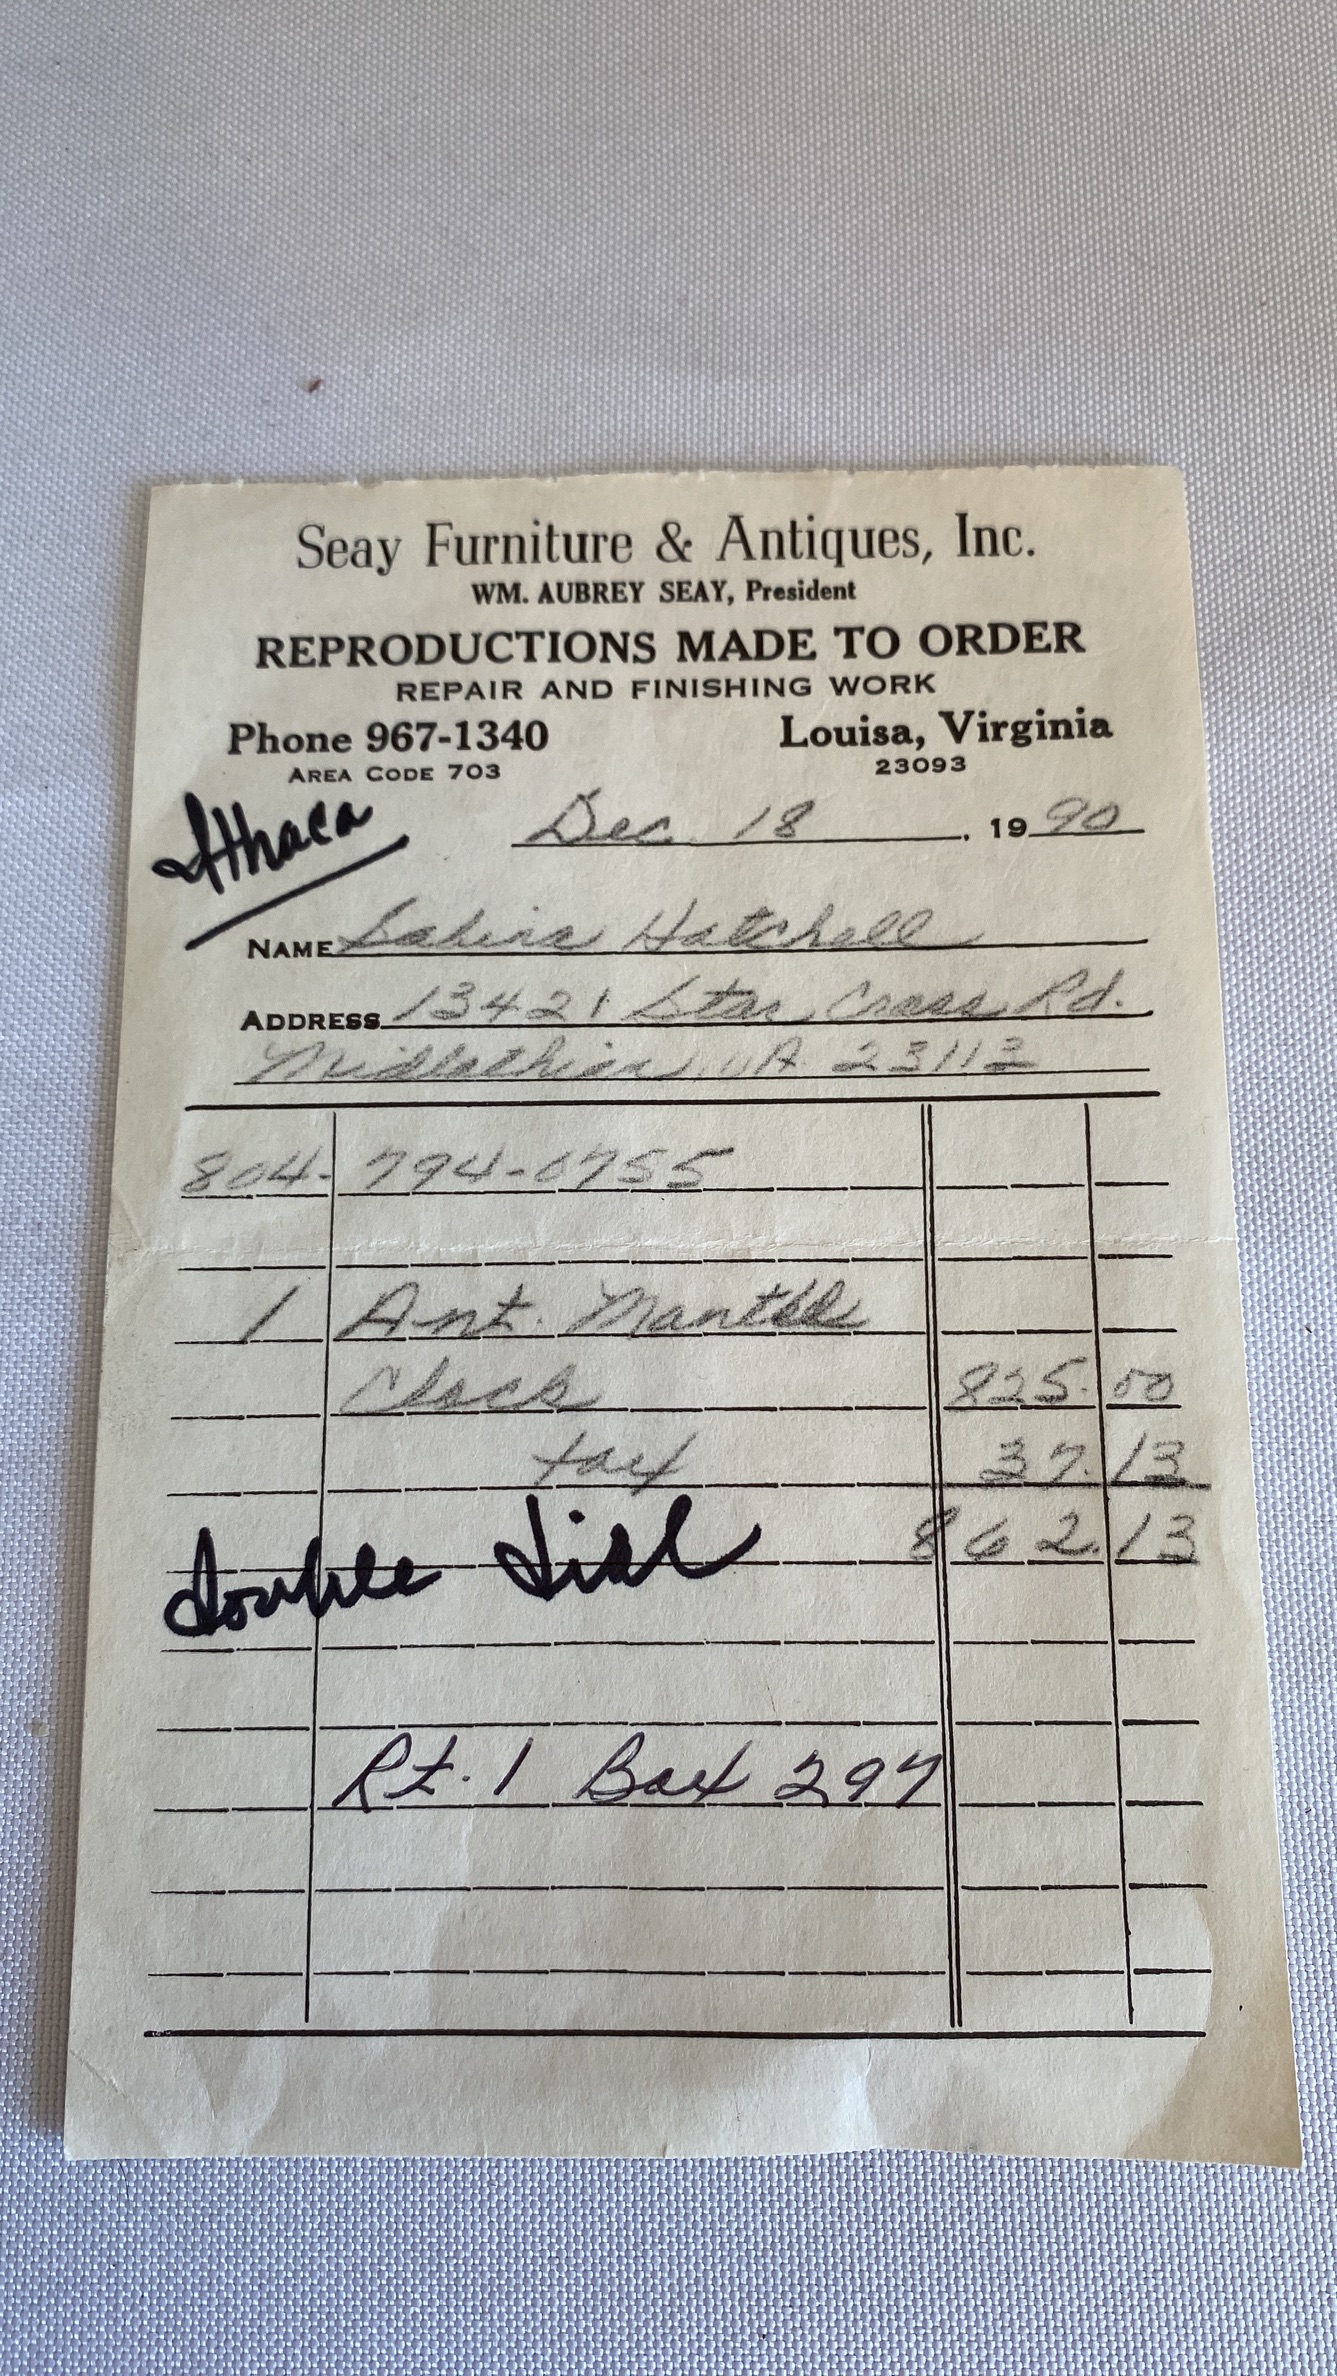 Seay Furniture & Antiques, Inc.
WM. AUBREY SEAY, President
REPRODUCTIONS MADE TO ORDER
REPAIR AND FINISHING WORK
Phone 967-1340 Louisa, Virginia
AREA CODE 703 23093
Ithaca
Dec. 18, 1990
NAME Hatchell
ADDRESS 13421 Star Cross Rd.
Midlothian, VA. 23113
804-794-0755
1 Ant. Mantle
Clock 825.00
tax 37.13
862.13
Double Dial
Rt. 1 Box 297